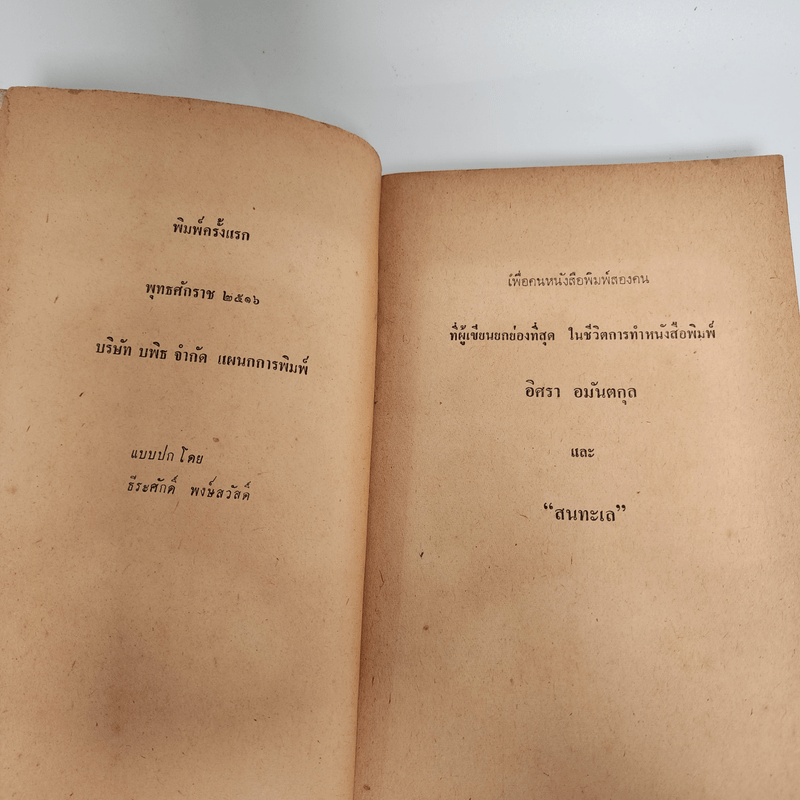 พิมพ์ครั้งแรก
พุทธศักราช ๒๕๑๖
บริษัท บพิธ จำกัด แผนกการพิมพ์
แบบปก โดย
ธีระศักดิ์ พงษ์สวัสดิ์
เพื่อคนหนังสือพิมพ์สองคน
ที่ผู้เขียนยกย่องที่สุด ในชีวิตการทำหนังสือพิมพ์
อิศรา อมันตกุล
และ
“สนทะเล”